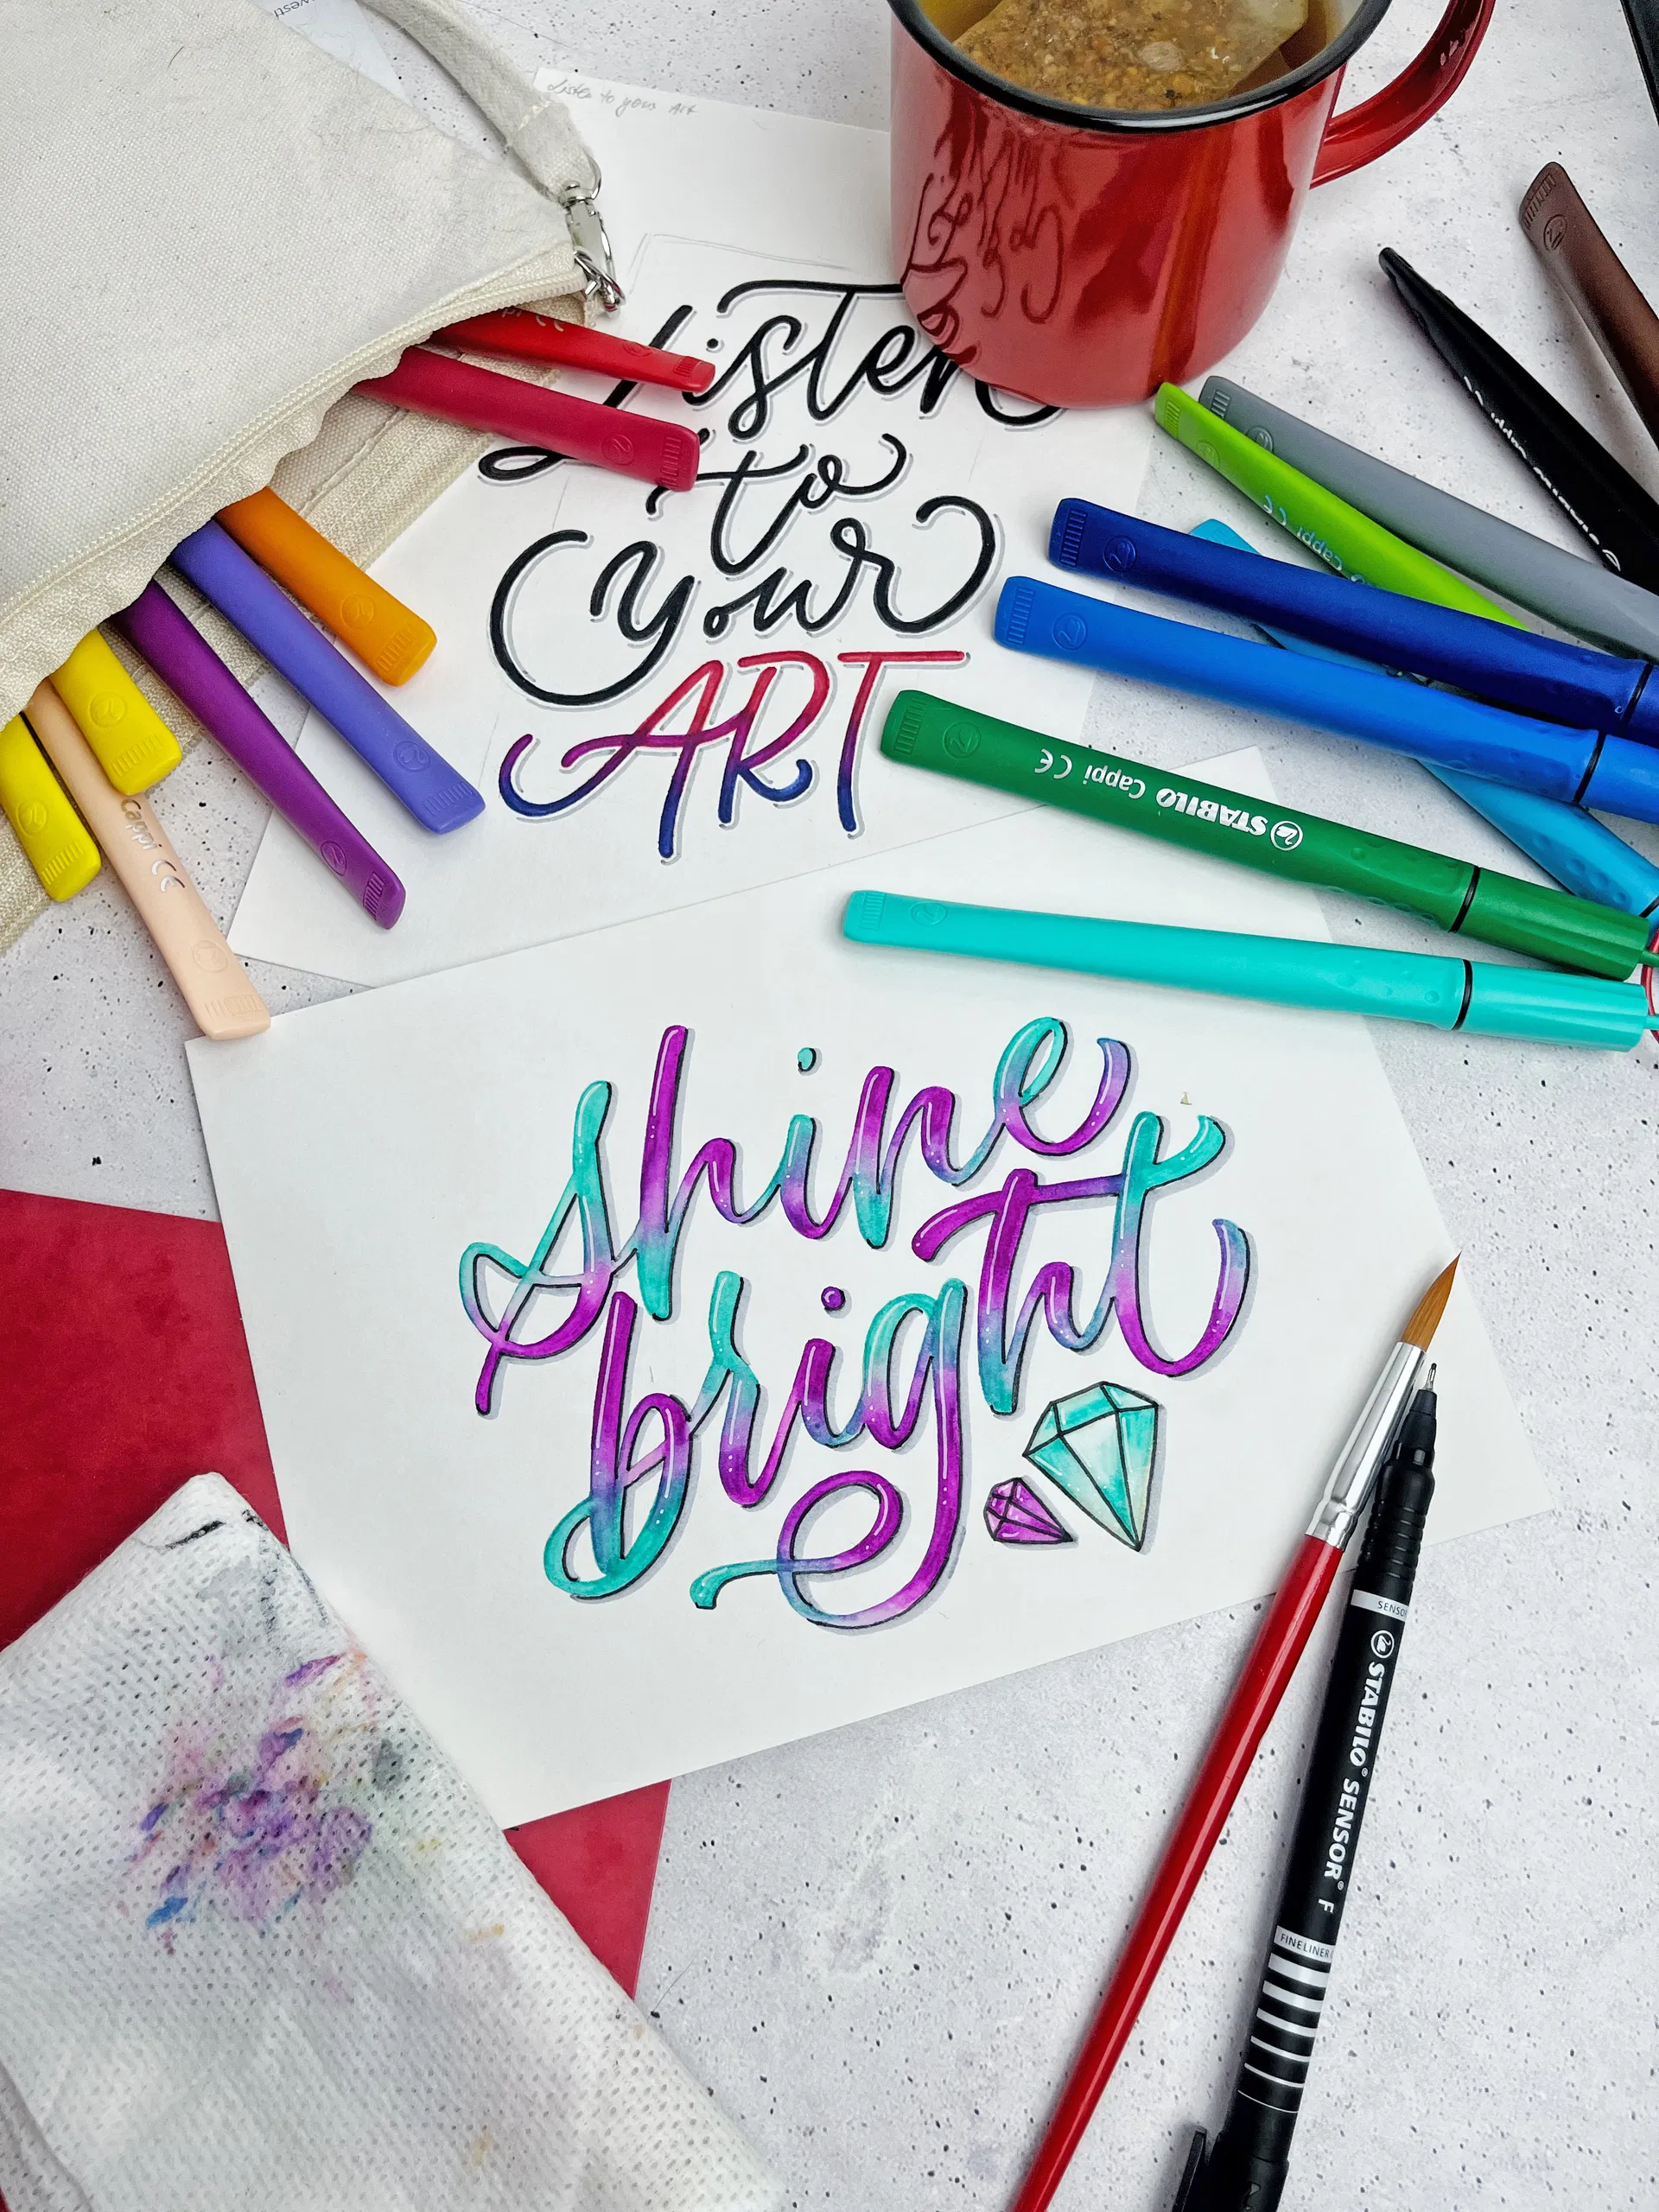 Listen to your Art
Listen
to
your
ART
Cappi CE
STABILO Cappi CE
Cappi CE
shine
bright
STABILO® SENSOR® F
FINELINER